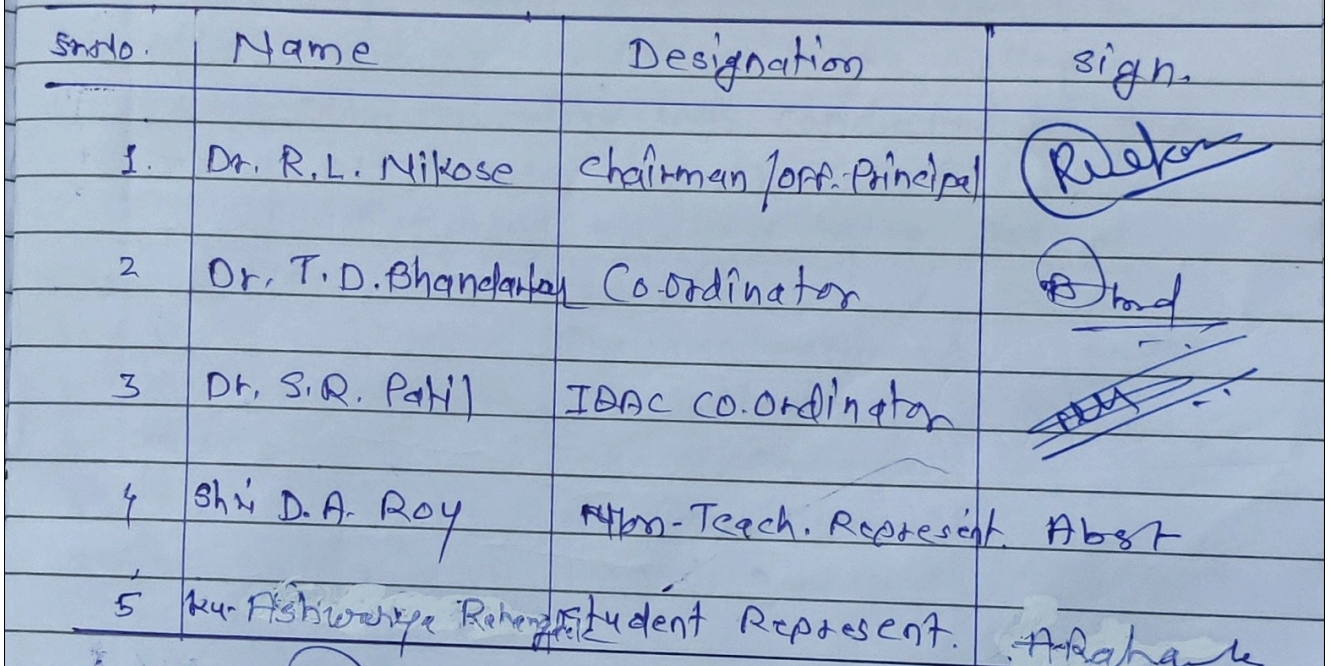 Sr.No. Name Designation Sign.
1. Dr. R.L. Nikose Chairman /off. Principal
2 Dr. T.D. Bhandarkar Co-ordinator
3 Dr. S.R. Patil IQAC CO.Ordinator
4 Shri D.A. Roy Non-Teach. Represent. Abst
5 Ku. Ashwariya Student Represent.